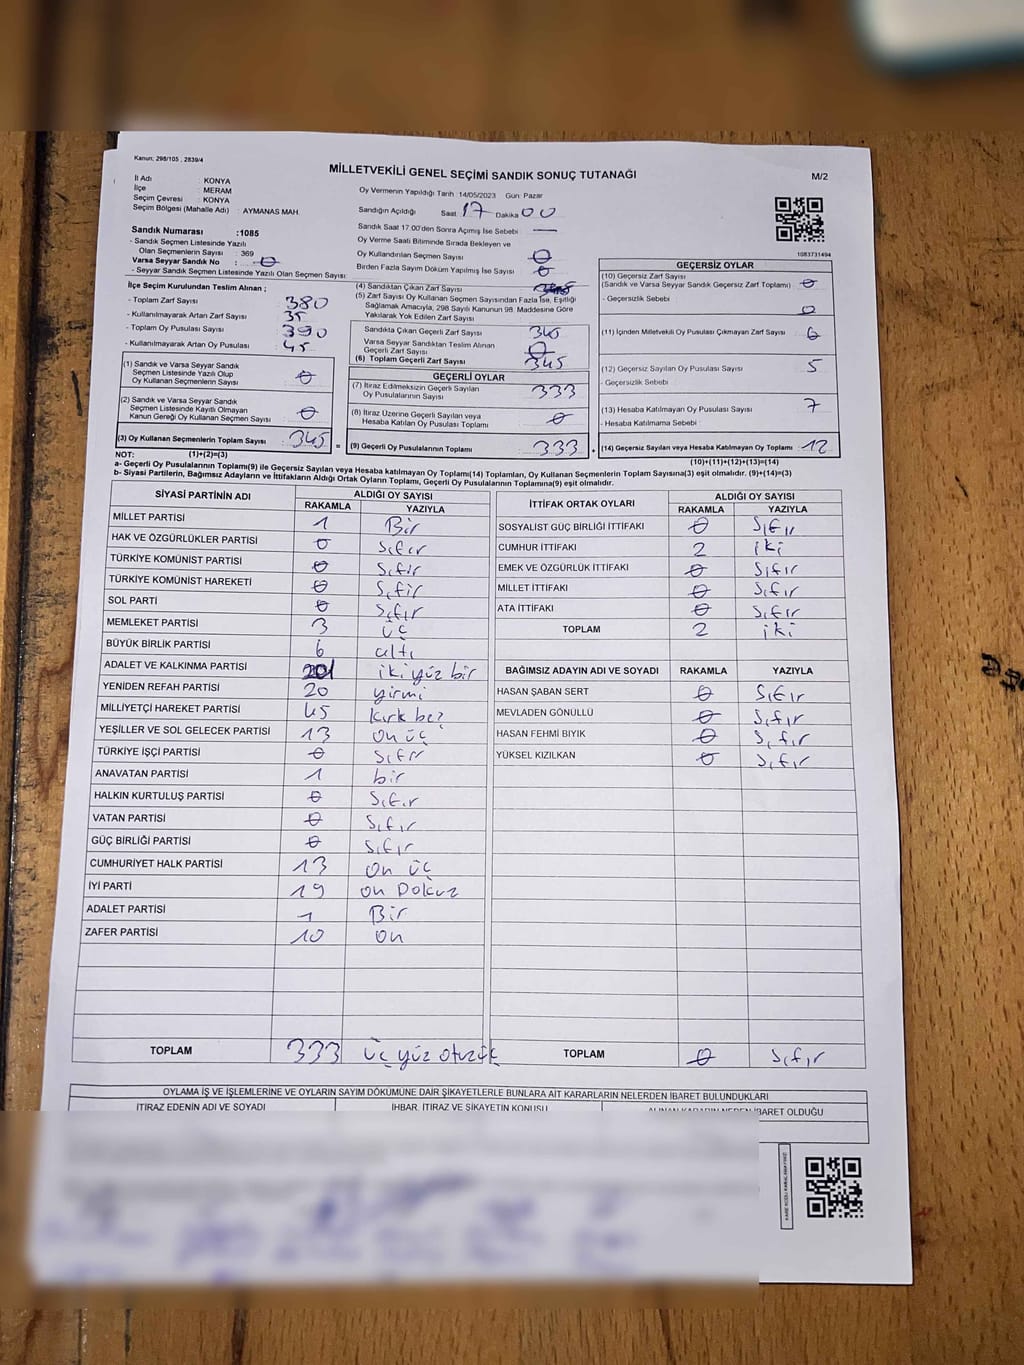 Kanun; 298/105 , 2839/4
MİLLETVEKİLİ GENEL SEÇİMİ SANDIK SONUÇ TUTANAĞI
M/2
İl Adı : KONYA
İlçe : MERAM
Seçim Çevresi : KONYA
Seçim Bölgesi (Mahalle Adı) : AYMANAS MAH.
Oy Vermenin Yapıldığı Tarih :14/05/2023 Gün: Pazar
Sandığın Açıldığı Saat 17 Dakika 00
Sandık Saat 17.00'den Sonra Açımış İse Sebebi —
Oy Verme Saati Bitiminde Sırada Bekleyen ve
Oy Kullandırılan Seçmen Sayısı 0
Birden Fazla Sayım Döküm Yapılmış İse Sayısı 0
1083731494
Sandık Numarası :1085
- Sandık Seçmen Listesinde Yazılı
Olan Seçmenlerin Sayısı : 369
Varsa Seyyar Sandık No : 0
- Seyyar Sandık Seçmen Listesinde Yazılı Olan Seçmen Sayısı:
İlçe Seçim Kurulundan Teslim Alınan ;
- Toplam Zarf Sayısı 380
- Kullanılmayarak Artan Zarf Sayısı 35
- Toplam Oy Pusulası Sayısı 390
- Kullanılmayarak Artan Oy Pusulası 45
(1) Sandık ve Varsa Seyyar Sandık
Seçmen Listesinde Yazılı Olup
Oy Kullanan Seçmenlerin Sayısı 0
(2) Sandık ve Varsa Seyyar Sandık
Seçmen Listesinde Kayıtlı Olmayan
Kanun Gereği Oy Kullanan Seçmen Sayısı 0
(3) Oy Kullanan Seçmenlerin Toplam Sayısı 345
(4) Sandıktan Çıkan Zarf Sayısı
(5) Zarf Sayısı Oy Kullanan Seçmen Sayısından Fazla İse, Eşitliği
Sağlamak Amacıyla, 298 Sayılı Kanunun 98. Maddesine Göre
Yakılarak Yok Edilen Zarf Sayısı
Sandıkta Çıkan Geçerli Zarf Sayısı 345
Varsa Seyyar Sandıktan Teslim Alınan
Geçerli Zarf Sayısı 0
(6) Toplam Geçerli Zarf Sayısı 345
GEÇERLİ OYLAR
(7) İtiraz Edilmeksizin Geçerli Sayılan
Oy Pusulalarının Sayısı 333
(8) İtiraz Üzerine Geçerli Sayılan veya
Hesaba Katılan Oy Pusulası Toplamı 0
= (9) Geçerli Oy Pusulalarının Toplamı 333
GEÇERSİZ OYLAR
(10) Geçersiz Zarf Sayısı
(Sandık ve Varsa Seyyar Sandık Geçersiz Zarf Toplamı) 0
- Geçersizlik Sebebi
0
(11) İçinden Milletvekili Oy Pusulası Çıkmayan Zarf Sayısı 6
(12) Geçersiz Sayılan Oy Pusulası Sayısı 5
- Geçersizlik Sebebi
(13) Hesaba Katılmayan Oy Pusulası Sayısı 7
- Hesaba Katılmama Sebebi
+ (14) Geçersiz Sayılan veya Hesaba Katılmayan Oy Toplamı 12
NOT: (1)+(2)=(3)
(10)+(11)+(12)+(13)=(14)
a- Geçerli Oy Pusulalarının Toplamı(9) ile Geçersiz Sayılan veya Hesaba katılmayan Oy Toplamı(14) Toplamları, Oy Kullanan Seçmenlerin Toplam Sayısına(3) eşit olmalıdır. (9)+(14)=(3)
b- Siyasi Partilerin, Bağımsız Adayların ve İttifakların Aldığı Ortak Oyların Toplamı, Geçerli Oy Pusulalarının Toplamına(9) eşit olmalıdır.
SİYASİ PARTİNİN ADI ALDIĞI OY SAYISI
RAKAMLA YAZIYLA
MİLLET PARTİSİ 1 Bir
HAK VE ÖZGÜRLÜKLER PARTİSİ 0 Sıfır
TÜRKİYE KOMÜNİST PARTİSİ 0 Sıfır
TÜRKİYE KOMÜNİST HAREKETİ 0 Sıfır
SOL PARTİ 0 Sıfır
MEMLEKET PARTİSİ 3 üç
BÜYÜK BİRLİK PARTİSİ 6 altı
ADALET VE KALKINMA PARTİSİ 201 iki yüz bir
YENİDEN REFAH PARTİSİ 20 yirmi
MİLLİYETÇİ HAREKET PARTİSİ 45 kırk beş
YEŞİLLER VE SOL GELECEK PARTİSİ 13 on üç
TÜRKİYE İŞÇİ PARTİSİ 0 Sıfır
ANAVATAN PARTİSİ 1 bir
HALKIN KURTULUŞ PARTİSİ 0 Sıfır
VATAN PARTİSİ 0 Sıfır
GÜÇ BİRLİĞİ PARTİSİ 0 Sıfır
CUMHURİYET HALK PARTİSİ 13 On üç
İYİ PARTİ 19 on Dokuz
ADALET PARTİSİ 1 Bir
ZAFER PARTİSİ 10 on
TOPLAM 333 üç yüz otuzük
İTTİFAK ORTAK OYLARI ALDIĞI OY SAYISI
RAKAMLA YAZIYLA
SOSYALİST GÜÇ BİRLİĞİ İTTİFAKI 0 Sıfır
CUMHUR İTTİFAKI 2 iki
EMEK VE ÖZGÜRLÜK İTTİFAKI 0 Sıfır
MİLLET İTTİFAKI 0 Sıfır
ATA İTTİFAKI 0 Sıfır
TOPLAM 2 iki
BAĞIMSIZ ADAYIN ADI VE SOYADI RAKAMLA YAZIYLA
HASAN ŞABAN SERT 0 Sıfır
MEVLADEN GÖNÜLLÜ 0 Sıfır
HASAN FEHMİ BIYIK 0 Sıfır
YÜKSEL KIZILKAN 0 Sıfır
TOPLAM 0 Sıfır
OYLAMA İŞ VE İŞLEMLERİNE VE OYLARIN SAYIM DÖKÜMÜNE DAİR ŞİKAYETLERLE BUNLARA AİT KARARLARIN NELERDEN İBARET BULUNDUKLARI
İTİRAZ EDENİN ADI VE SOYADI İHBAR, İTİRAZ VE ŞİKAYETİN KONUSU ALINAN KARARIN NEDEN İBARET OLDUĞU